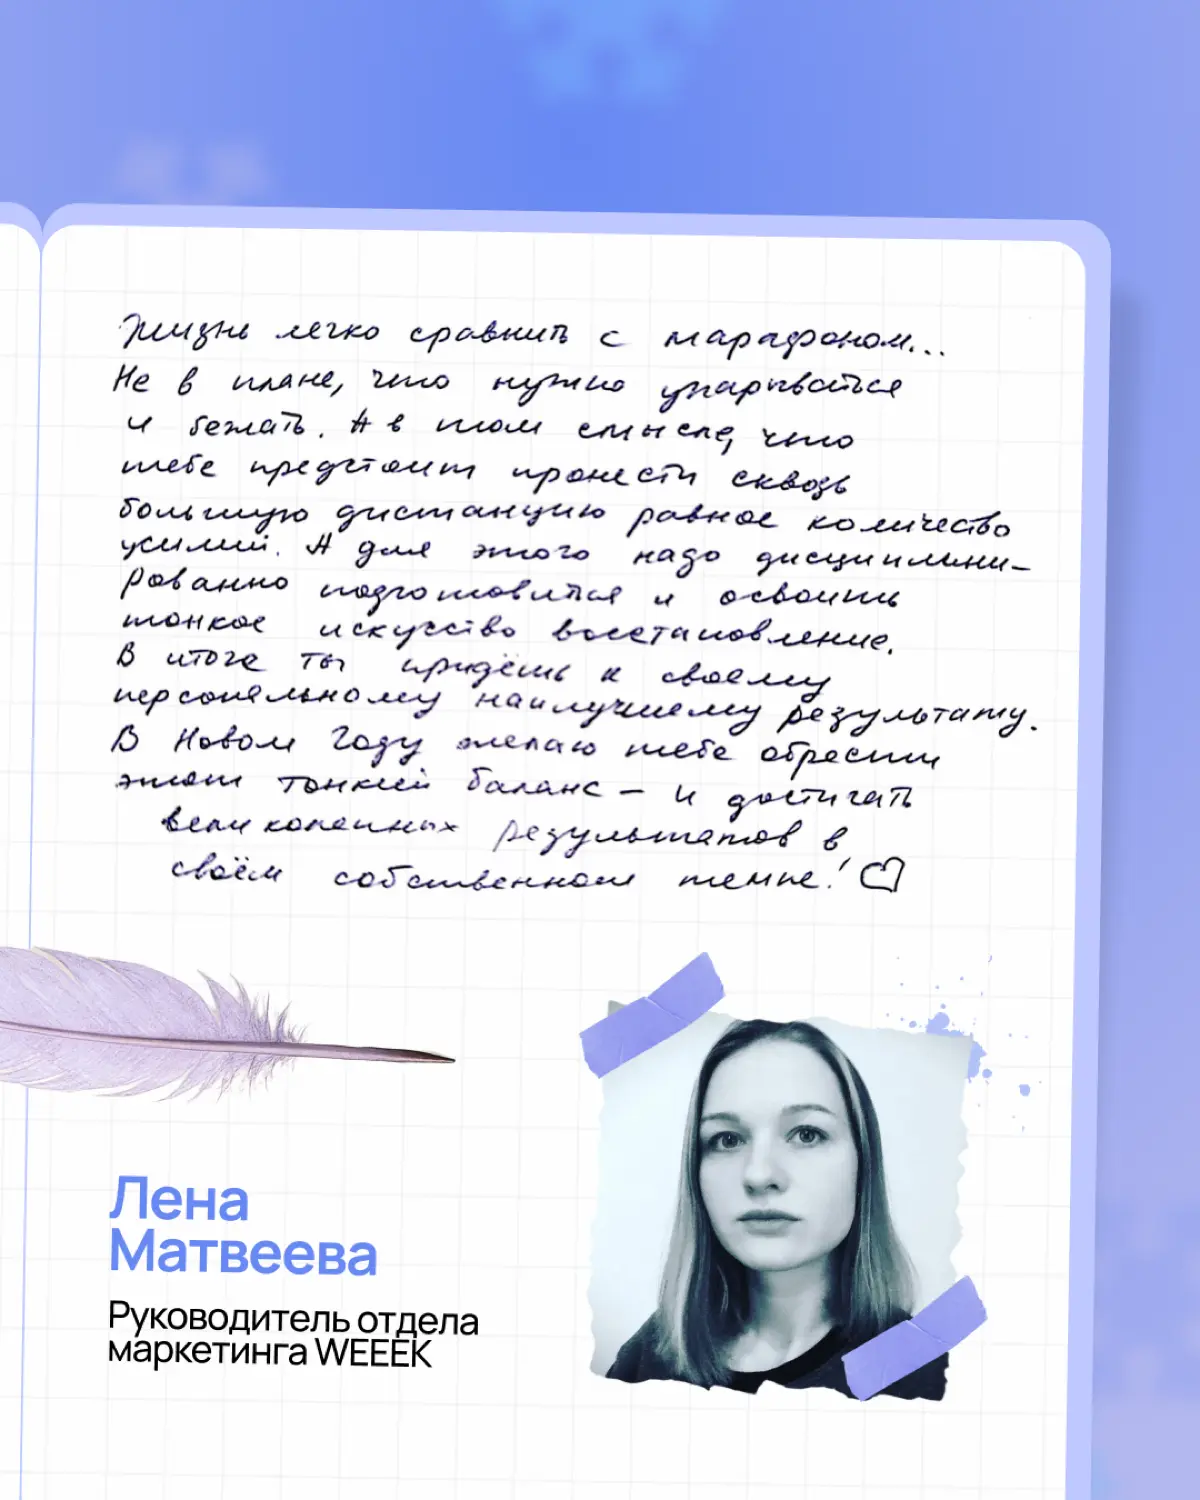 Жизнь легко сравнить с марафоном...
Не в плане, что нужно упарываться
и бежать. А в том смысле, что
тебе предстоит пронести сквозь
большую дистанцию равное количество
усилий. А для этого надо дисциплини-
рованно подготовиться и освоить
тонкое искусство восстановление.
В итоге ты придёшь к своему
персональному наилучшему результату.
В Новом Году желаю тебе обрести
этот тонкий баланс – и достигать
великолепных результатов в
своём собственном темпе!
Лена
Матвеева
Руководитель отдела
маркетинга WEEEK